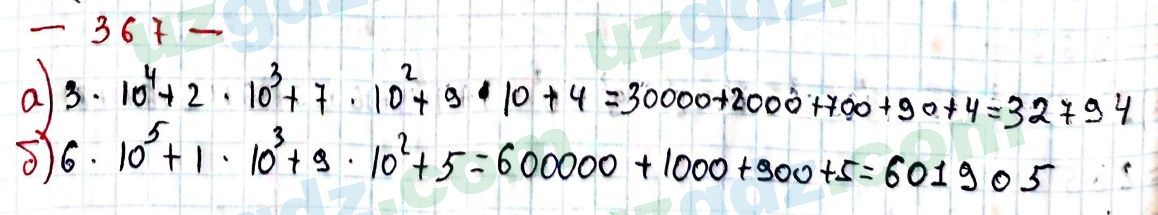 — 367 —
а) 3 · 10⁴ + 2 · 10³ + 7 · 10² + 9 · 10 + 4 = 30000 + 2000 + 700 + 90 + 4 = 32794
б) 6 · 10⁵ + 1 · 10³ + 9 · 10² + 5 = 600000 + 1000 + 900 + 5 = 601905